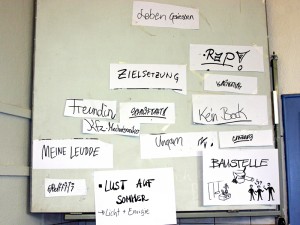 Leben Genießen
Rap!
ZIELSETZUNG
Freundin
Kein Bock
Kfz-Mechatroniker
Ungarn
MEINE LEUDDE
BAUSTELLE
• LUST AUF
SOMMER
→ Licht + Energie